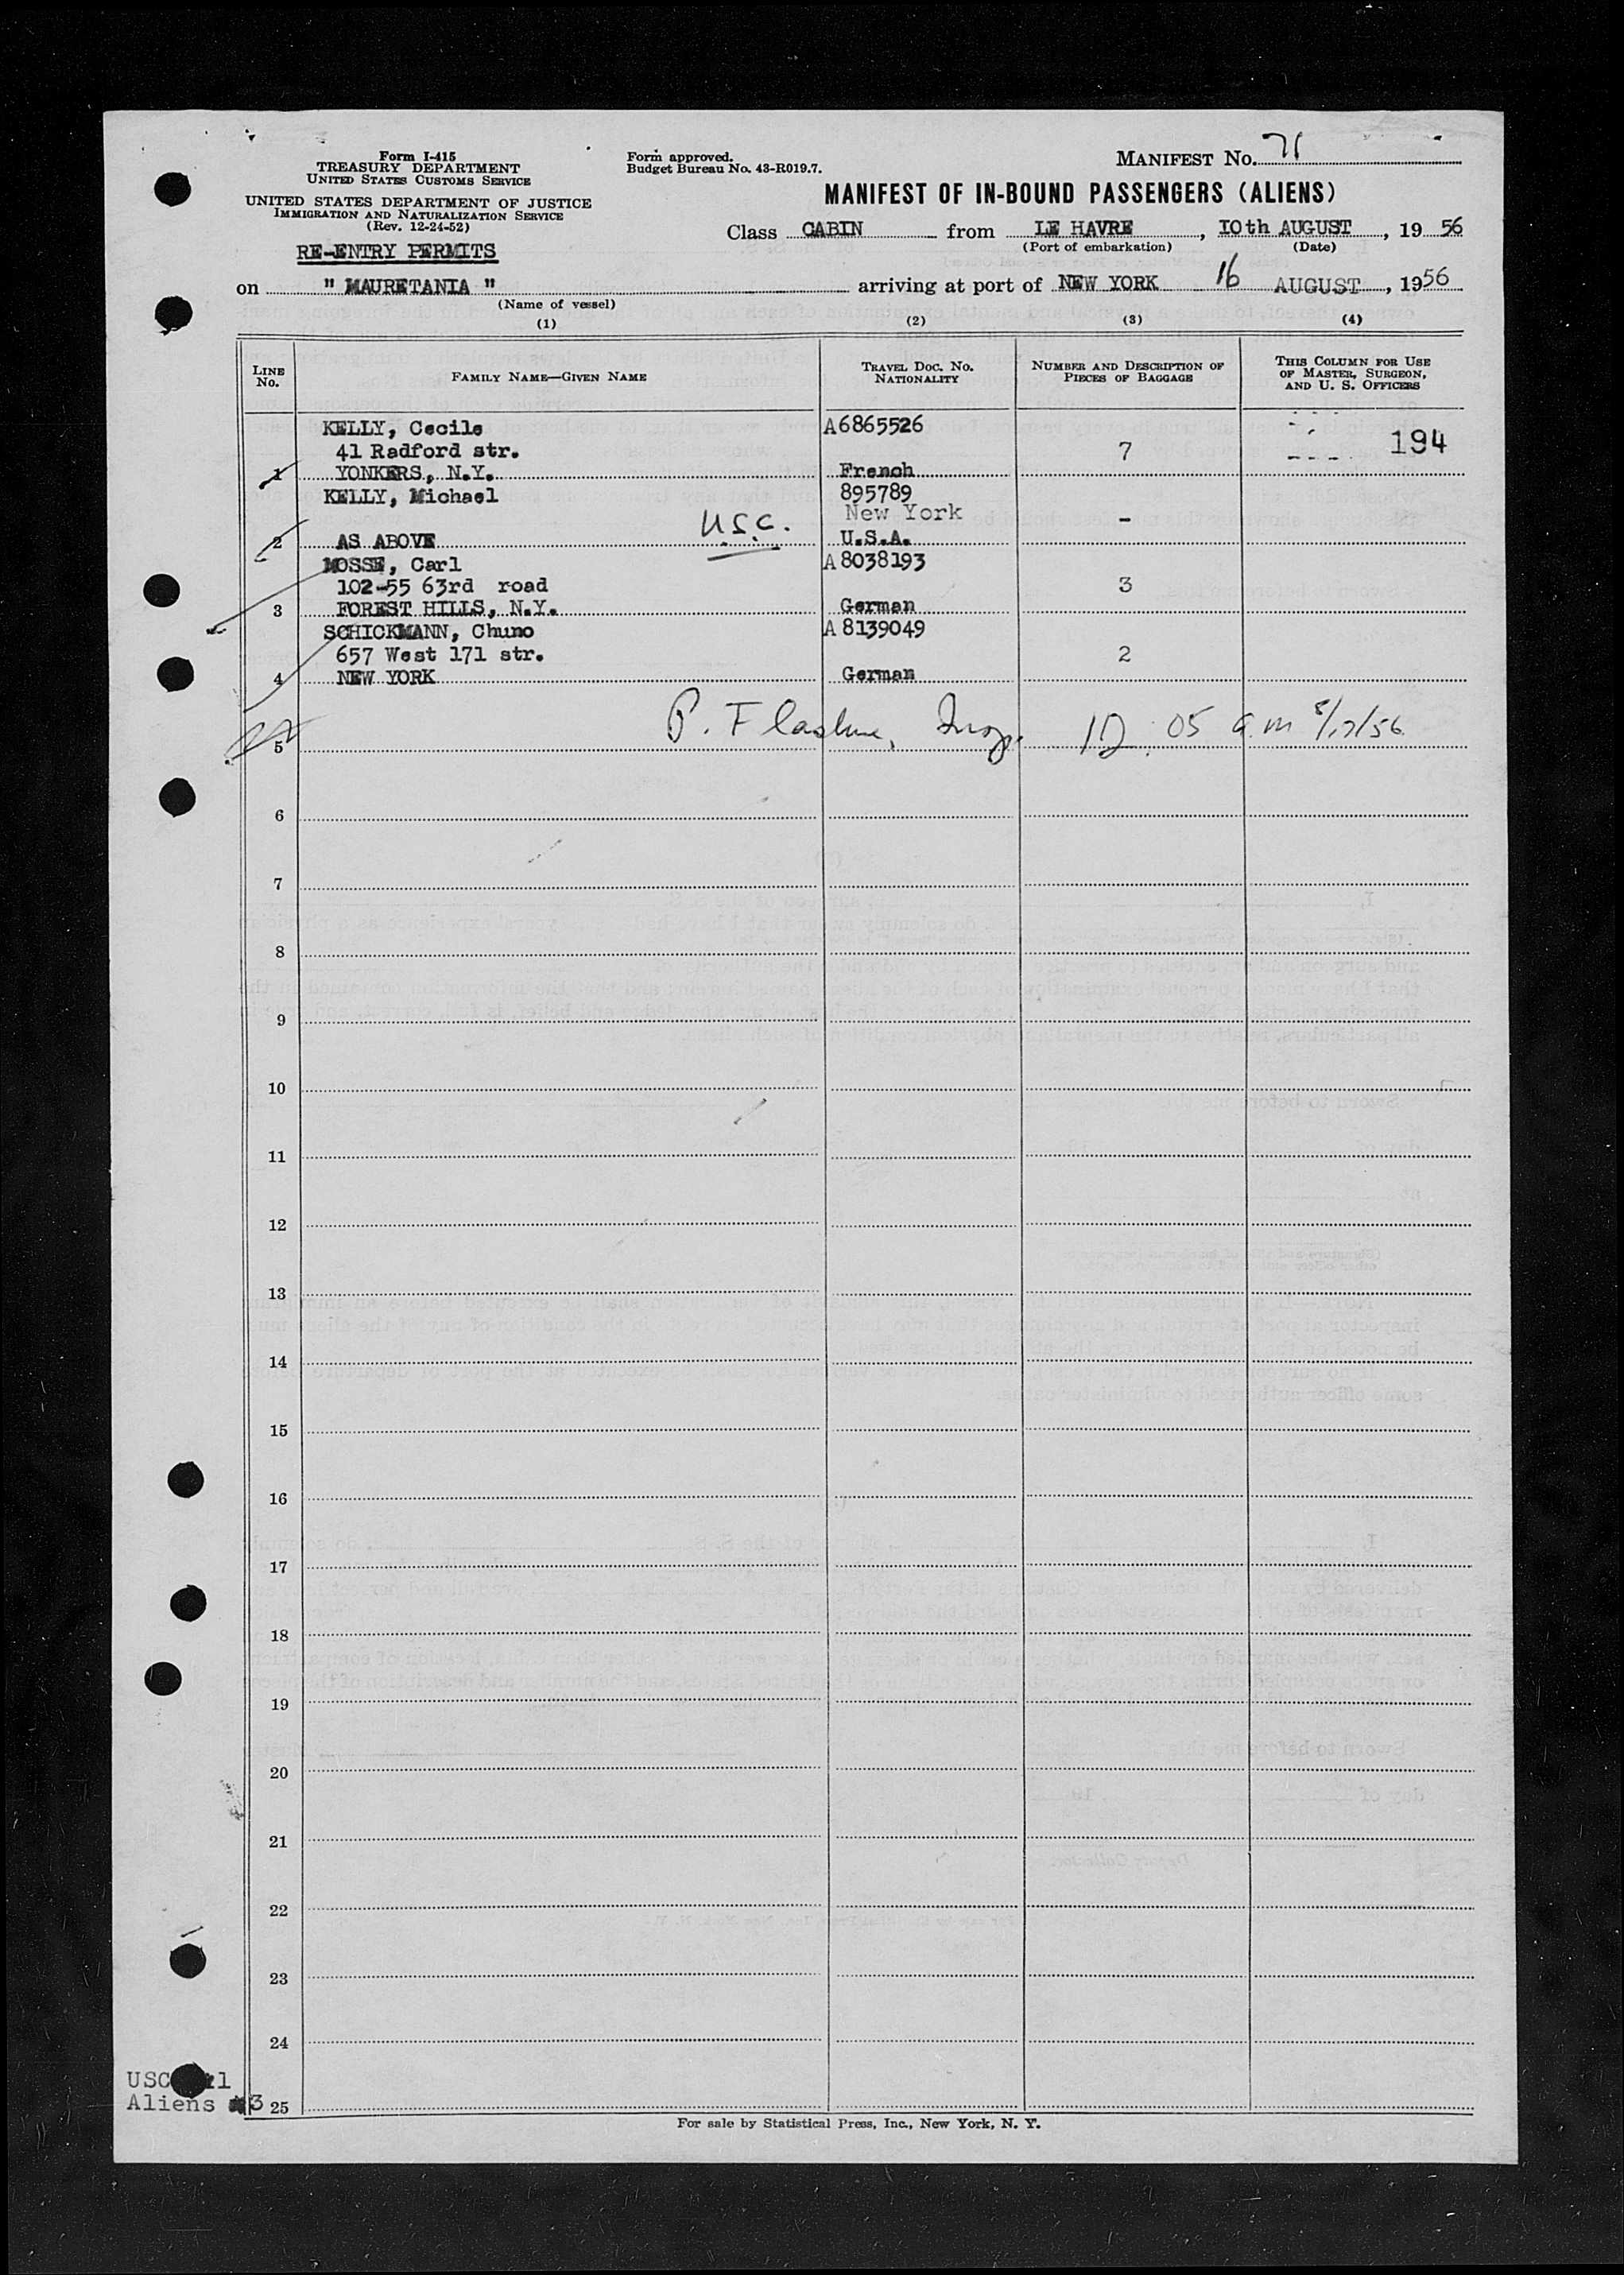 Form I-415
TREASURY DEPARTMENT
UNITED STATES CUSTOMS SERVICE
UNITED STATES DEPARTMENT OF JUSTICE
IMMIGRATION AND NATURALIZATION SERVICE
(Rev. 12-24-52)
RE-ENTRY PERMITS
Form approved.
Budget Bureau No. 43-R019.7.
MANIFEST No. 71
MANIFEST OF IN-BOUND PASSENGERS (ALIENS)
Class CABIN from LE HAVRE, 10th AUGUST, 19 56
(Port of embarkation) (Date)
on " MAURETANIA " arriving at port of NEW YORK 16 AUGUST, 1956
(Name of vessel)
(1) (2) (3) (4)
LINE No. FAMILY NAME—GIVEN NAME TRAVEL DOC. No. NATIONALITY NUMBER AND DESCRIPTION OF PIECES OF BAGGAGE THIS COLUMN FOR USE OF MASTER, SURGEON, AND U. S. OFFICERS
KELLY, Cecile A6865526
41 Radford str. 7 194
1 YONKERS, N.Y. French
KELLY, Michael 895789
U.S.C. New York -
2 AS ABOVE U.S.A.
MOSSE, Carl A8038193
102-55 63rd road 3
3 FOREST HILLS, N.Y. German
SCHICKMANN, Chuno A 8139049
657 West 171 str. 2
4 NEW YORK German
5 P. 05 a.m 8/17/56
6
7
8
9
10
11
12
13
14
15
16
17
18
19
20
21
22
23
24
USC 1
Aliens 3 25
For sale by Statistical Press, Inc., New York, N. Y.